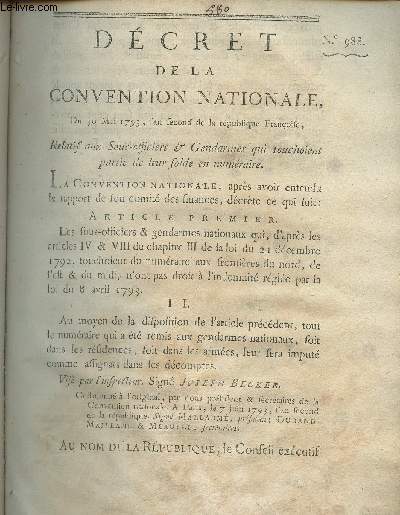 Le-livre.com
980
DÉCRET
N.° 988.
DE LA
CONVENTION NATIONALE,
Du 30 Mai 1793, l'an second de la république Françoise,
Relatif aux Sous-officiers & Gendarmes qui touchoient
partie de leur solde en numéraire.
LA CONVENTION NATIONALE, après avoir entendu
le rapport de son comité des finances, décrète ce qui suit:
ARTICLE PREMIER.
Les sous-officiers & gendarmes nationaux qui, d'après les
articles IV & VIII du chapitre III de la loi du 21 décembre
1792, touchoient du numéraire aux frontières du nord, de
l'est & du midi, n'ont pas droit à l'indemnité réglée par la
loi du 8 avril 1793.
II.
Au moyen de la disposition de l'article précédent, tout
le numéraire qui a été remis aux gendarmes nationaux, soit
dans les résidences, soit dans les armées, leur sera imputé
comme assignats dans les décomptes.
Visé par l'inspecteur. Signé JOSEPH BECKER.
Collationné à l'original, par nous président & secrétaires de la
Convention nationale. A Paris, le 7 juin 1793, l'an second
de la république. Signé MALLARMÉ, président; DURAND-
MAILLANE & MÉAULLE, secrétaires.
AU NOM DE LA RÉPUBLIQUE, le Conseil exécutif